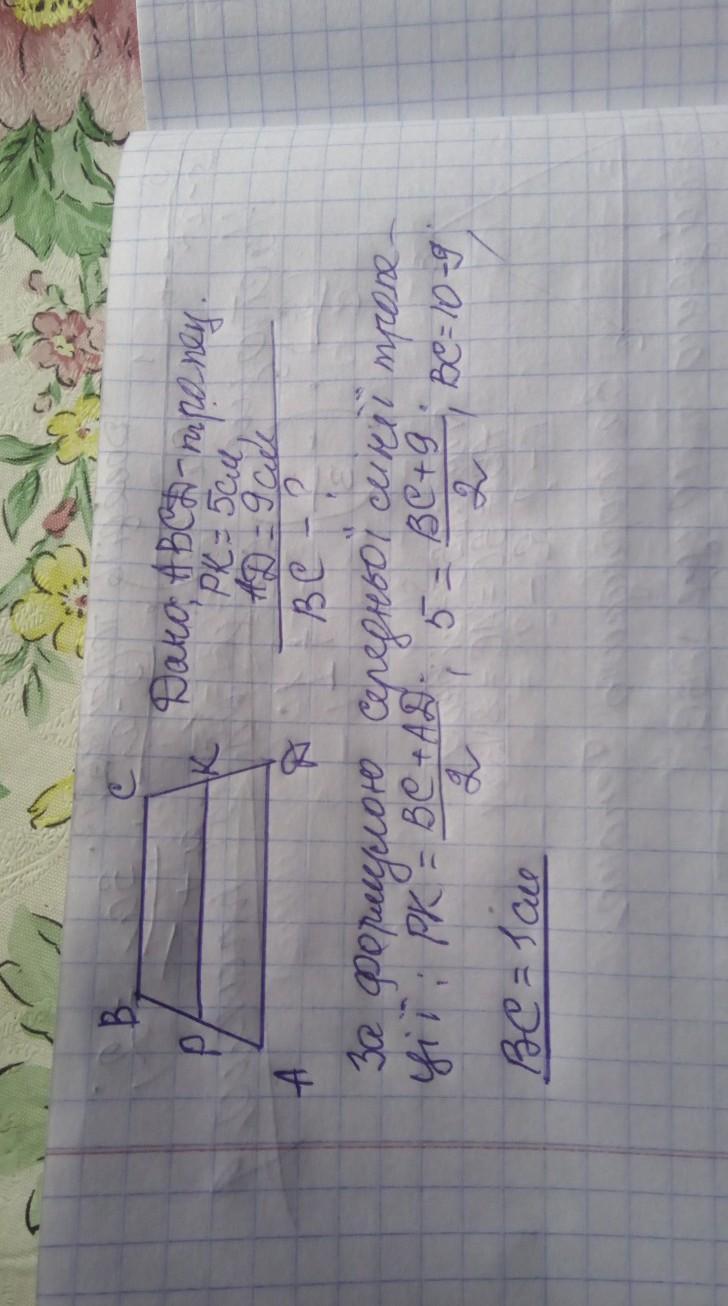 B
C
P
K
A
D
Дано: ABCD-трапец.
PK = 5см
AD = 9см
BC - ?
За формулою середньої лінії трапе-
ції: PK = BC + AD / 2 ; 5 = BC + 9 / 2 ; BC = 10 - 9;
BC = 1 см